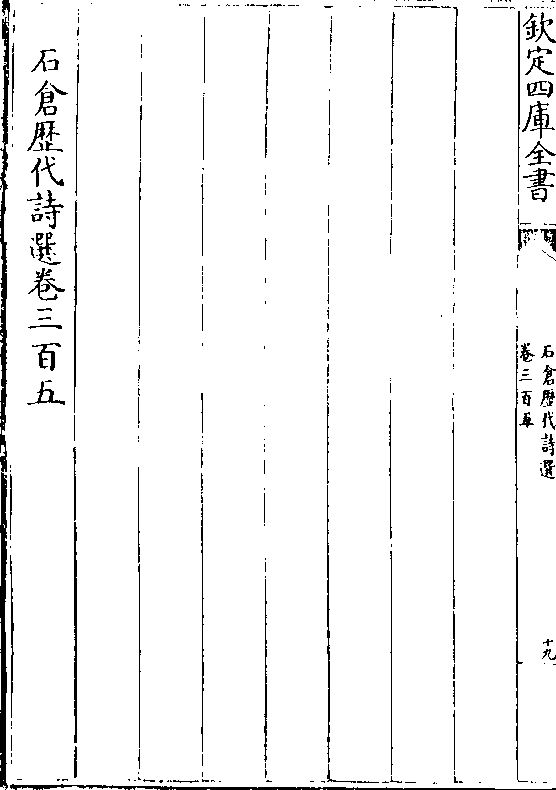 欽定四庫全書
石倉歷代詩選
卷三百五
十九
石倉歷代詩選卷三百五